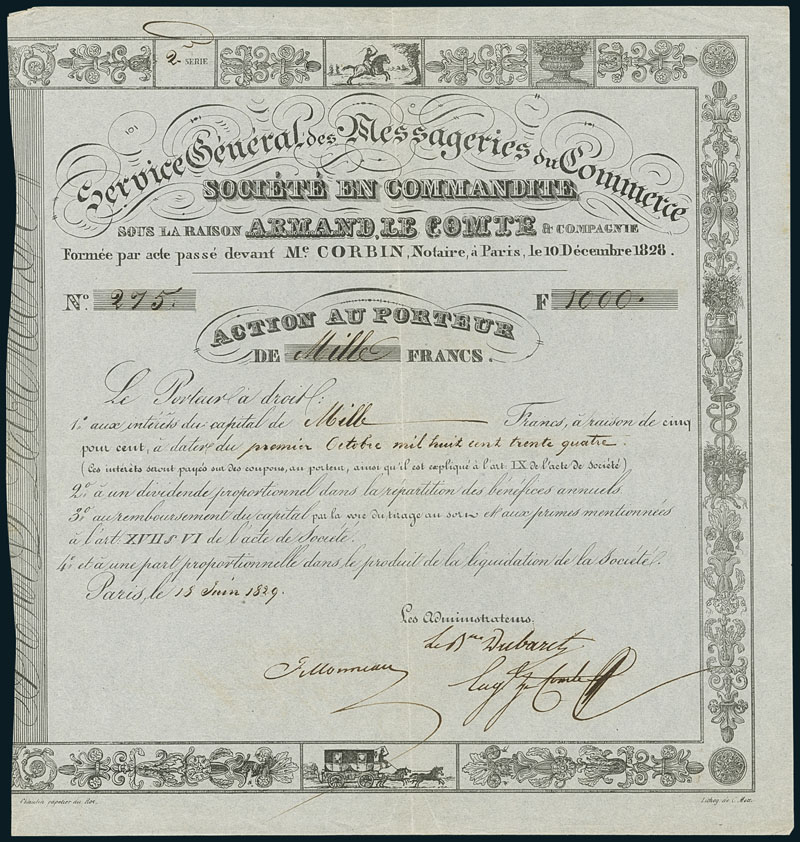 2
SERIE
Service Général des Messageries du Commerce
SOCIÉTÉ EN COMMANDITE
SOUS LA RAISON ARMAND LE COMTE & COMPAGNIE
Formée par acte passé devant Me. CORBIN, Notaire, à Paris, le 10 Décembre 1828.
No. 275. F 1000.
ACTION AU PORTEUR
DE Mille FRANCS.
Le Porteur a droit:
1o. aux intérêts du capital de Mille Francs, à raison de cinq
pour cent, à dater du premier Octobre mil huit cent trente quatre.
(Ces intérêts seront payés sur des coupons, au porteur, ainsi qu'il est expliqué à l'art. IX de l'acte de Société)
2o. à un dividende proportionnel dans la répartition des bénéfices annuels.
3o. au remboursement du capital par la voie du tirage au sort et aux primes mentionnées
à l'art. XVII & VI de l'acte de Société.
4o. et à une part proportionnelle dans le produit de la liquidation de la Société.
Paris, le 15 Juin 1829.
Les Administrateurs.
Le Bon Dubaret
papetier du Roi.
Lithog. de C. Motte